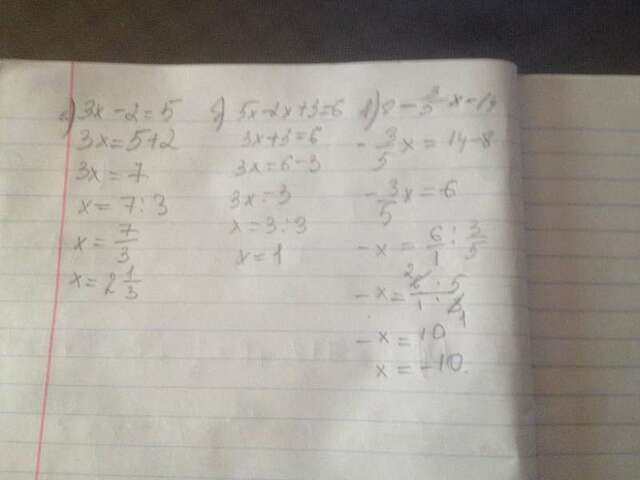 а) 3x - 2 = 5
3x = 5 + 2
3x = 7
x = 7 : 3
x = 7/3
x = 2 1/3
б) 5x - 2x + 3 = 6
3x + 3 = 6
3x = 6 - 3
3x = 3
x = 3 : 3
x = 1
в) 8 - 3/5 x = 14
- 3/5 x = 14 - 8
- 3/5 x = 6
- x = 6/1 : 3/5
- x = 6 · 5 / 1 · 3
- x = 10
x = -10.